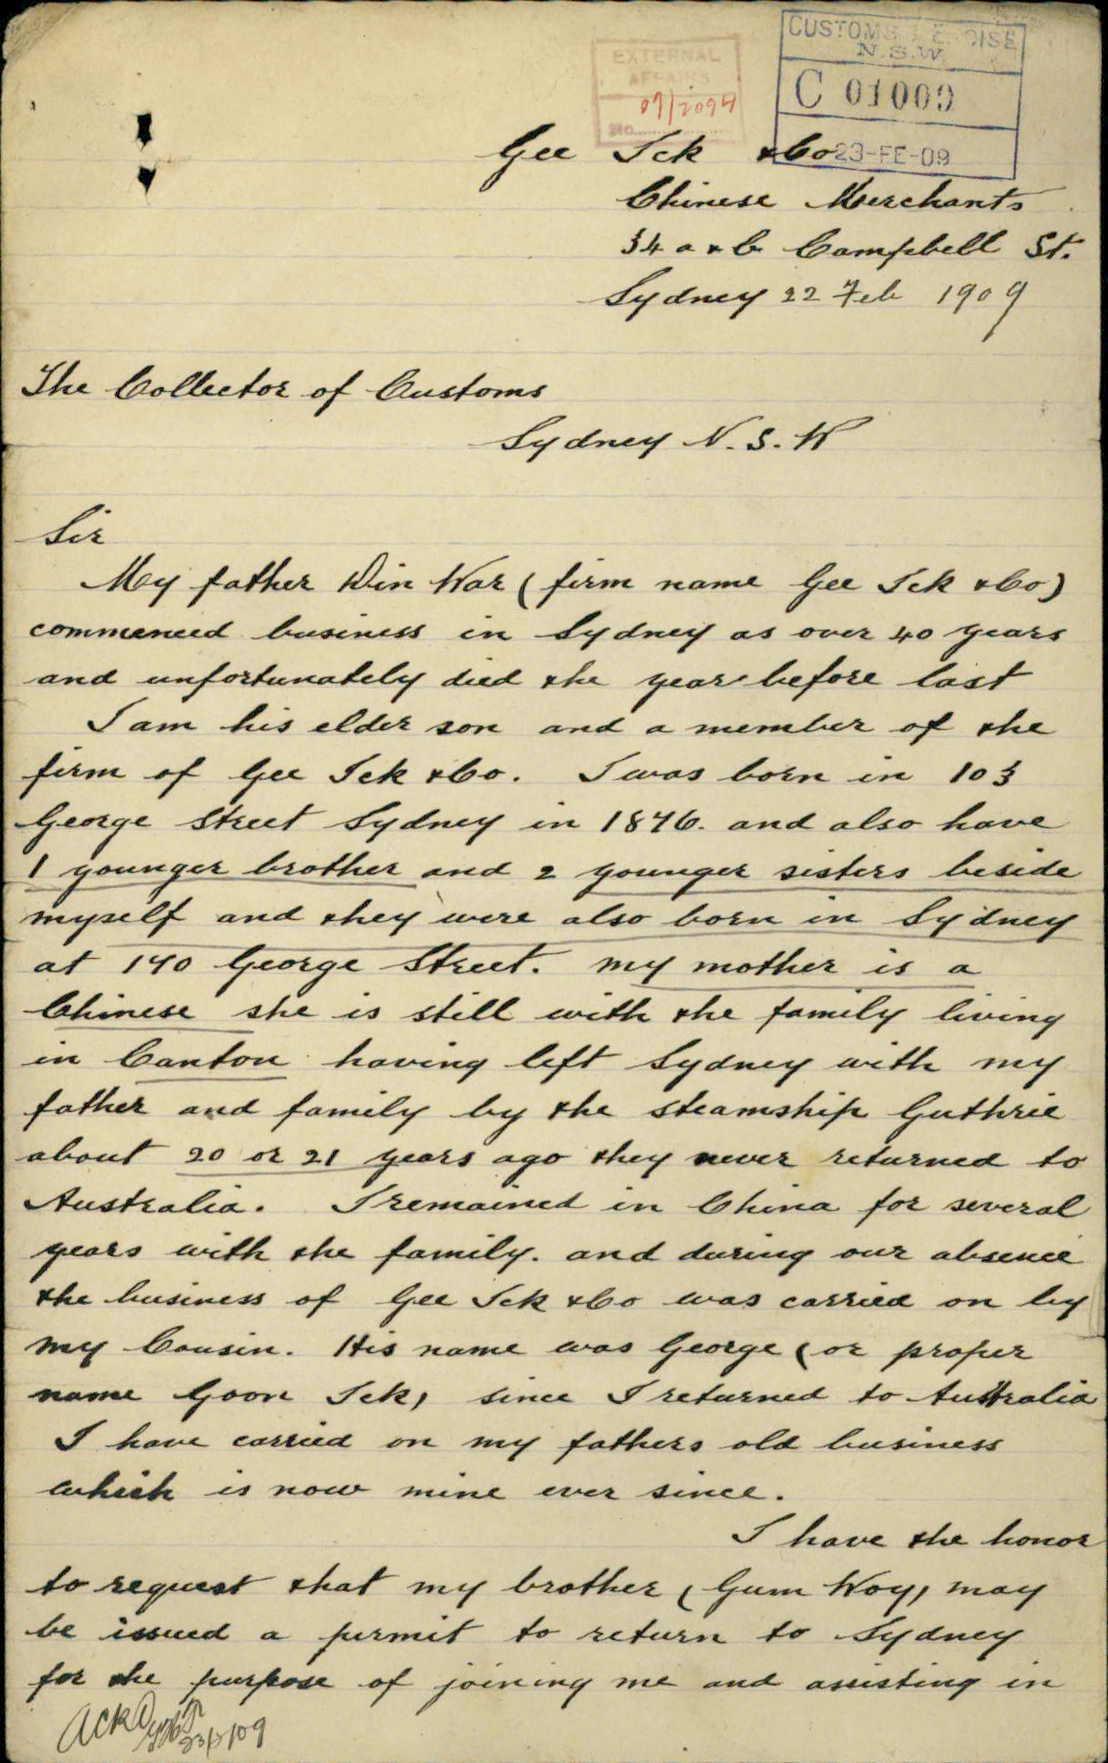 EXTERNAL
AFFAIRS
09/2094
No.
CUSTOMS & EXCISE
N.S.W.
C 01009
23-FE-09
Gee Ick & Co
Chinese Merchants
34 a & b Campbell St.
Sydney 22 Feb 1909
The Collector of Customs
Sydney N.S.W
Sir
My father Win War (firm name Gee Ick & Co)
commenced business in Sydney as over 40 years
and unfortunately died the year before last
I am his elder son and a member of the
firm of Gee Ick & Co. I was born in 103
George Street Sydney in 1876. and also have
1 younger brother and 2 younger sisters beside
myself and they were also born in Sydney
at 140 George Street. my mother is a
Chinese she is still with the family living
in Canton having left Sydney with my
father and family by the steamship Guthrie
about 20 or 21 years ago they never returned to
Australia. I remained in China for several
years with the family. and during our absence
the business of Gee Ick & Co was carried on by
my Cousin. His name was George (or proper
name Goon Ick) since I returned to Australia
I have carried on my fathers old business
which is now mine ever since.
I have the honor
to request that my brother (Gum Woy) may
be issued a permit to return to Sydney
for the purpose of joining me and assisting in
Ackd